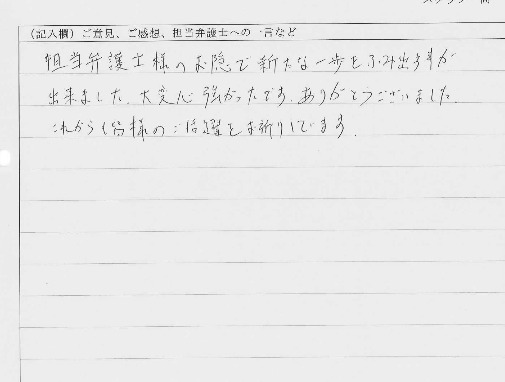 (記入欄) ご意見、ご感想、担当弁護士への一言など
担当弁護士様のお隠で新たな一歩をふみ出す事が
出来ました。大変心強かったです。ありがとうございました。
これからも皆様のご活躍をお祈りしています。